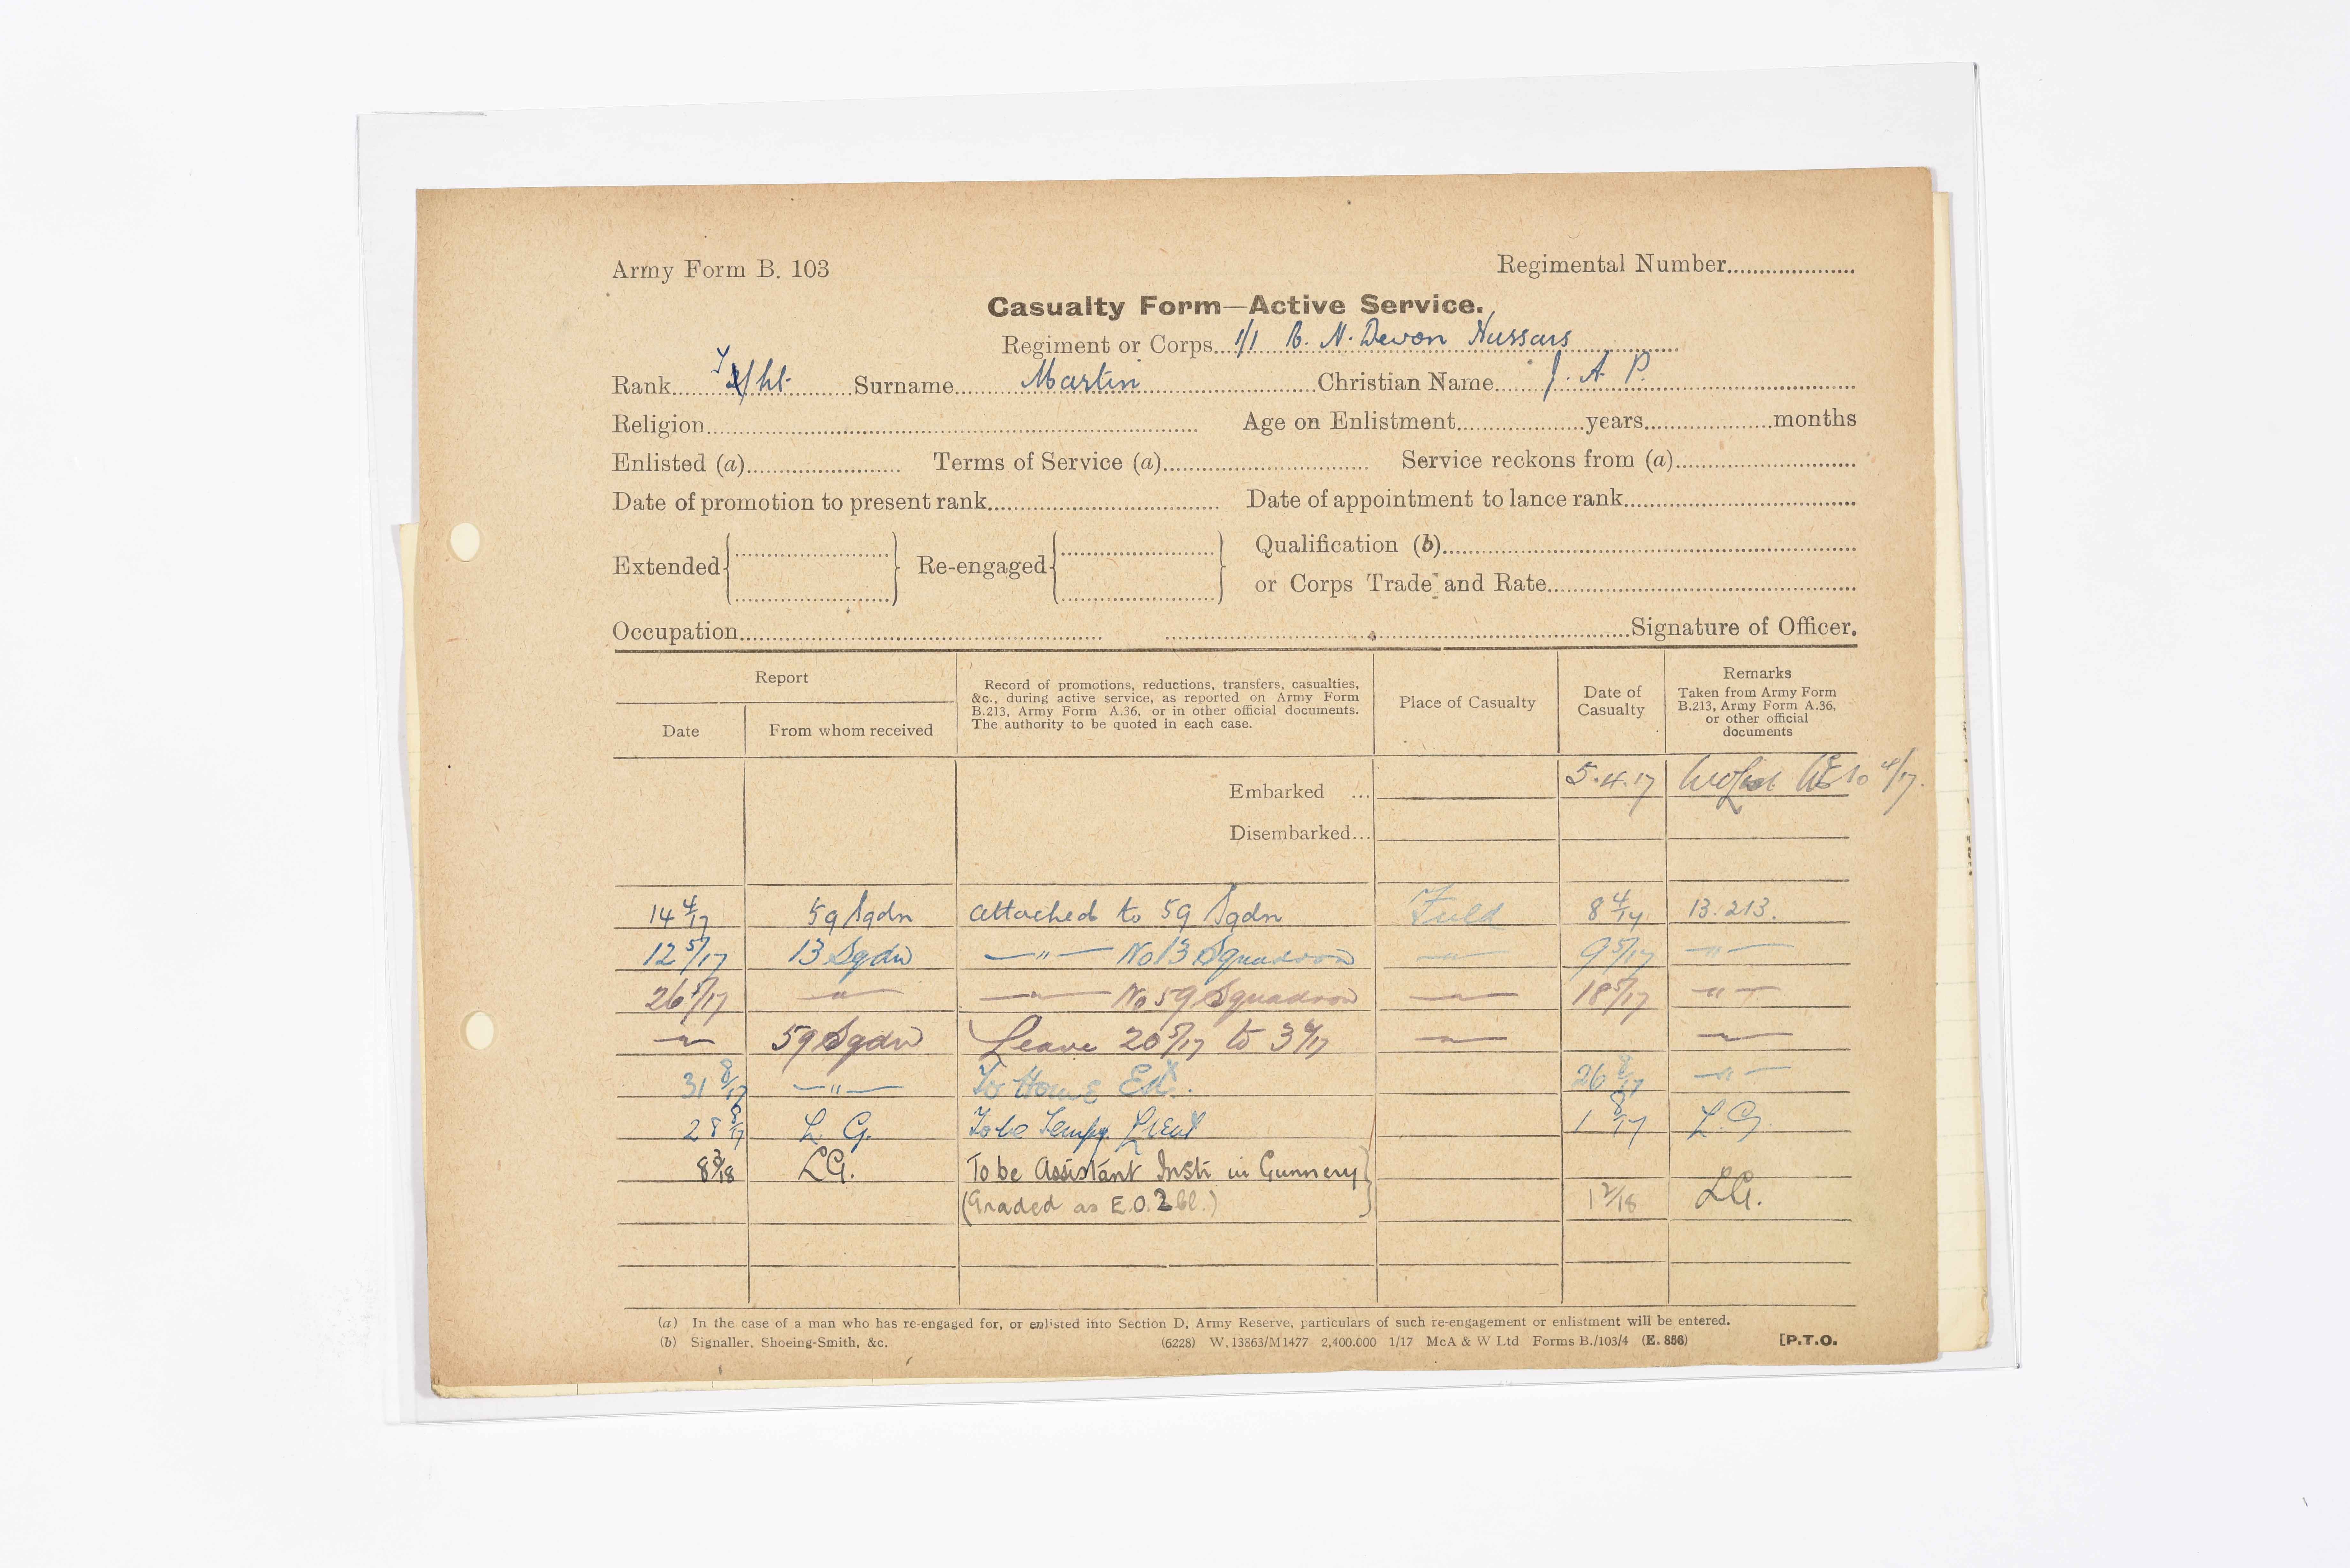 Army Form B. 103
Regimental Number
Casualty Form—Active Service.
Regiment or Corps 1/1 R. N. Devon Hussars
Rank T/Lt. Surname Martin Christian Name J. A. P.
Religion Age on Enlistment years months
Enlisted (a) Terms of Service (a) Service reckons from (a)
Date of promotion to present rank Date of appointment to lance rank
Extended Re-engaged Qualification (b)
or Corps Trade and Rate
Occupation Signature of Officer.
Report
Date
From whom received
Record of promotions, reductions, transfers, casualties,
&c., during active service, as reported on Army Form
B.213, Army Form A.36, or in other official documents.
The authority to be quoted in each case.
Place of Casualty
Date of
Casualty
Remarks
Taken from Army Form
B.213, Army Form A.36,
or other official
documents
Embarked ... 5.4.17 4/17.
Disembarked...
14 4/17 59 Sqdn attached to 59 Sqdn Field 8 4/17 B.213.
12 5/17 13 Sqdn —"— No 13 Squadron —"— 9 5/17 —"—
26 5/17 —"— —"— No 59 Squadron —"— 18 5/17 —"—
—"— 59 Sqdn Leave 20 5/17 to 3 6/17 —"— —"—
31 8/17 —"— To Home Est. 26 8/17 —"—
28 8/17 L. G. To be Tempy Lieut 1 8/17 L.G.
8 3/18 L.G. To be Assistant Instr in Gunnery
(Graded as E.O. 2 Cl.) 1 2/18 L.G.
(a) In the case of a man who has re-engaged for, or enlisted into Section D, Army Reserve, particulars of such re-engagement or enlistment will be entered.
(b) Signaller, Shoeing-Smith, &c. (6228) W. 13863/M1477 2,400.000 1/17 McA & W Ltd Forms B./103/4 (E. 856) [P.T.O.